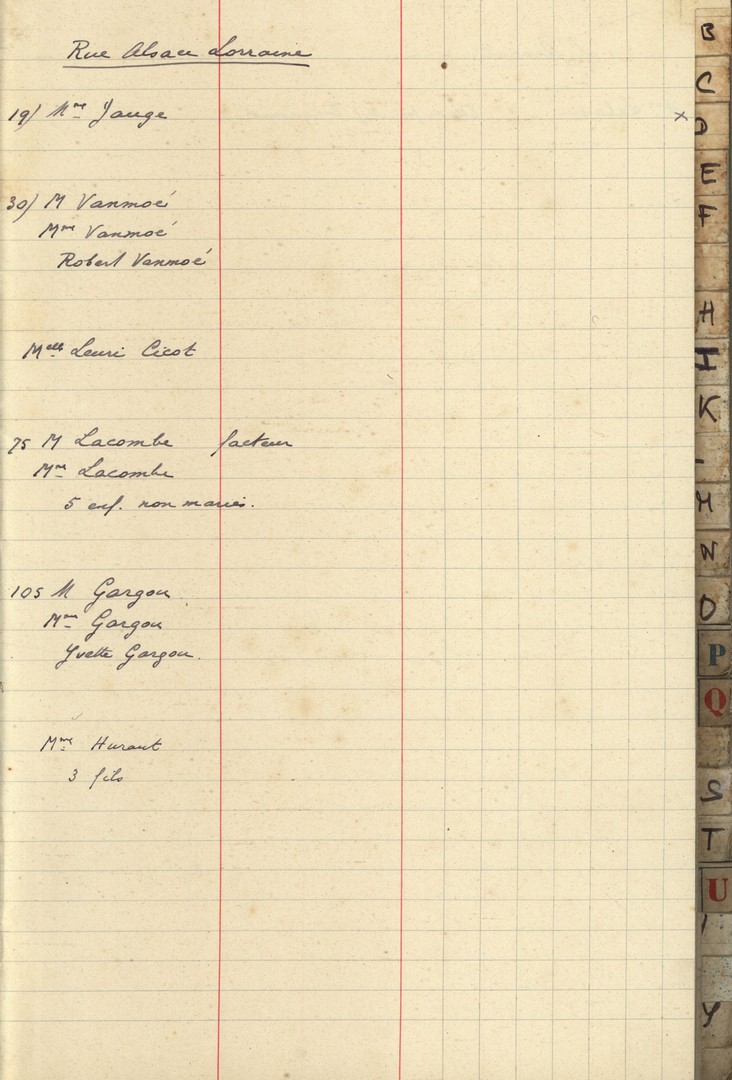 Rue Alsace Lorraine
19/ Mme Jauge x
30/ M Vanmoé
Mme Vanmoé
Robert Vanmoé
Melle Leuri Cicot
75 M Lacombe facteur
Mme Lacombe
5 enf. non mariés.
105 M Gargou
Mme Gargou
Yvette Gargou.
Mme Huraut
3 fils
B
C
D
E
F
H
I
K
M
N
O
P
Q
S
T
U
Y